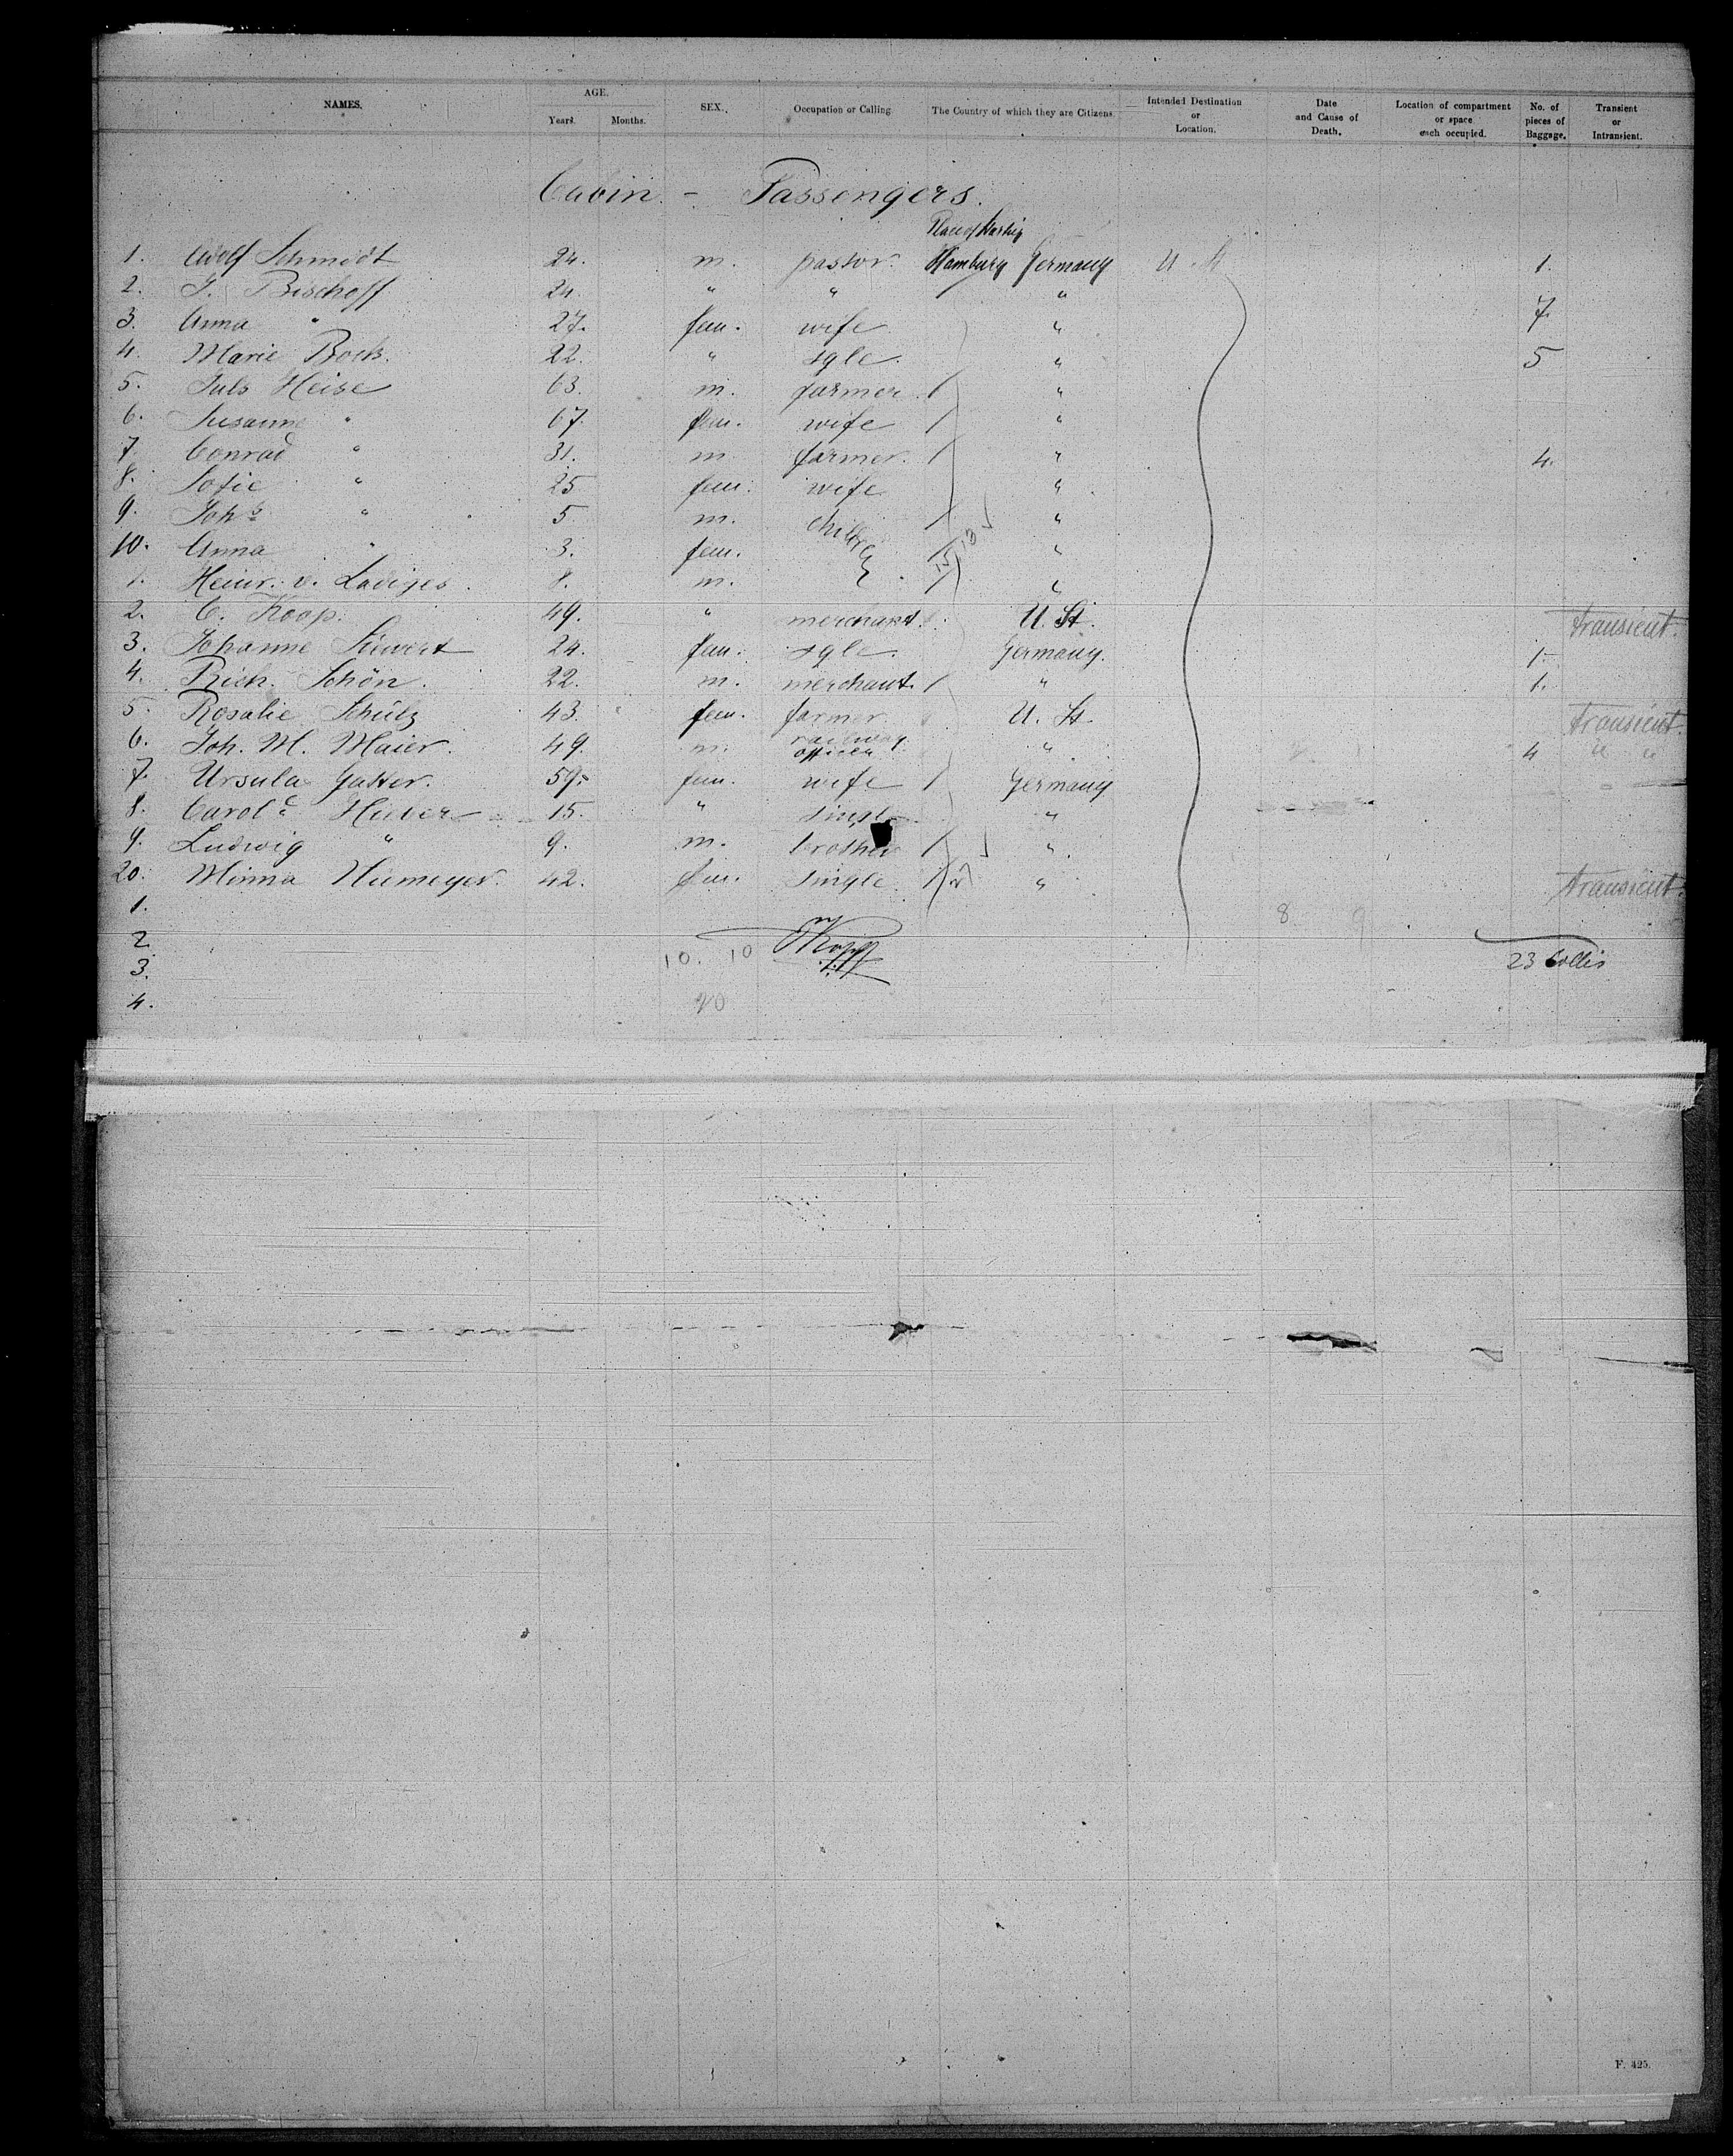 NAMES. AGE. Years. Months. SEX. Occupation or Calling. The Country of which they are Citizens. Intended Destination or Location. Date and Cause of Death. Location of compartment or space each occupied. No. of pieces of Baggage. Transient or Intransient.
Cabin - Passengers.
1. Adolf Schmidt 24. m. pastor. Hamburg Germany U. St. 1.
2. J. Bischoff 24. " " " 7.
3. Anna " 27. fem. wife "
4. Marie Bock. 22. " sgle. " 5
5. Juls Heise 63. m. farmer "
6. Susanne " 67. fem. wife "
7. Conrad " 31. m farmer. " 4.
8. Sofie " 25 fem. wife "
9. Johs " 5. m. "
10. Anna " 3. fem. "
1. Heinr. v. Ladiges. 8. m. "
2. C. Koop. 49. " merchant. U. St. transient.
3. Johanne Siewert 24. fem. sgle. Germany. 1.
4. Rich. Schön. 22. m. merchant. " 1.
5. Rosalie Schulz 43. fem. farmer U. St. transient.
6. Joh. M. Maier. 49. m. railway officer " 4 " "
7. Ursula Gasser. 59. fem. wife Germany
8. Carole Huber 15. " single "
9. Ludwig " 9. m. brother "
20. Minna Niemeyer. 42. fem. single "  transient.
1. 8 9
2. 10. 10 23 Collis
3.
4. 20
F. 425.